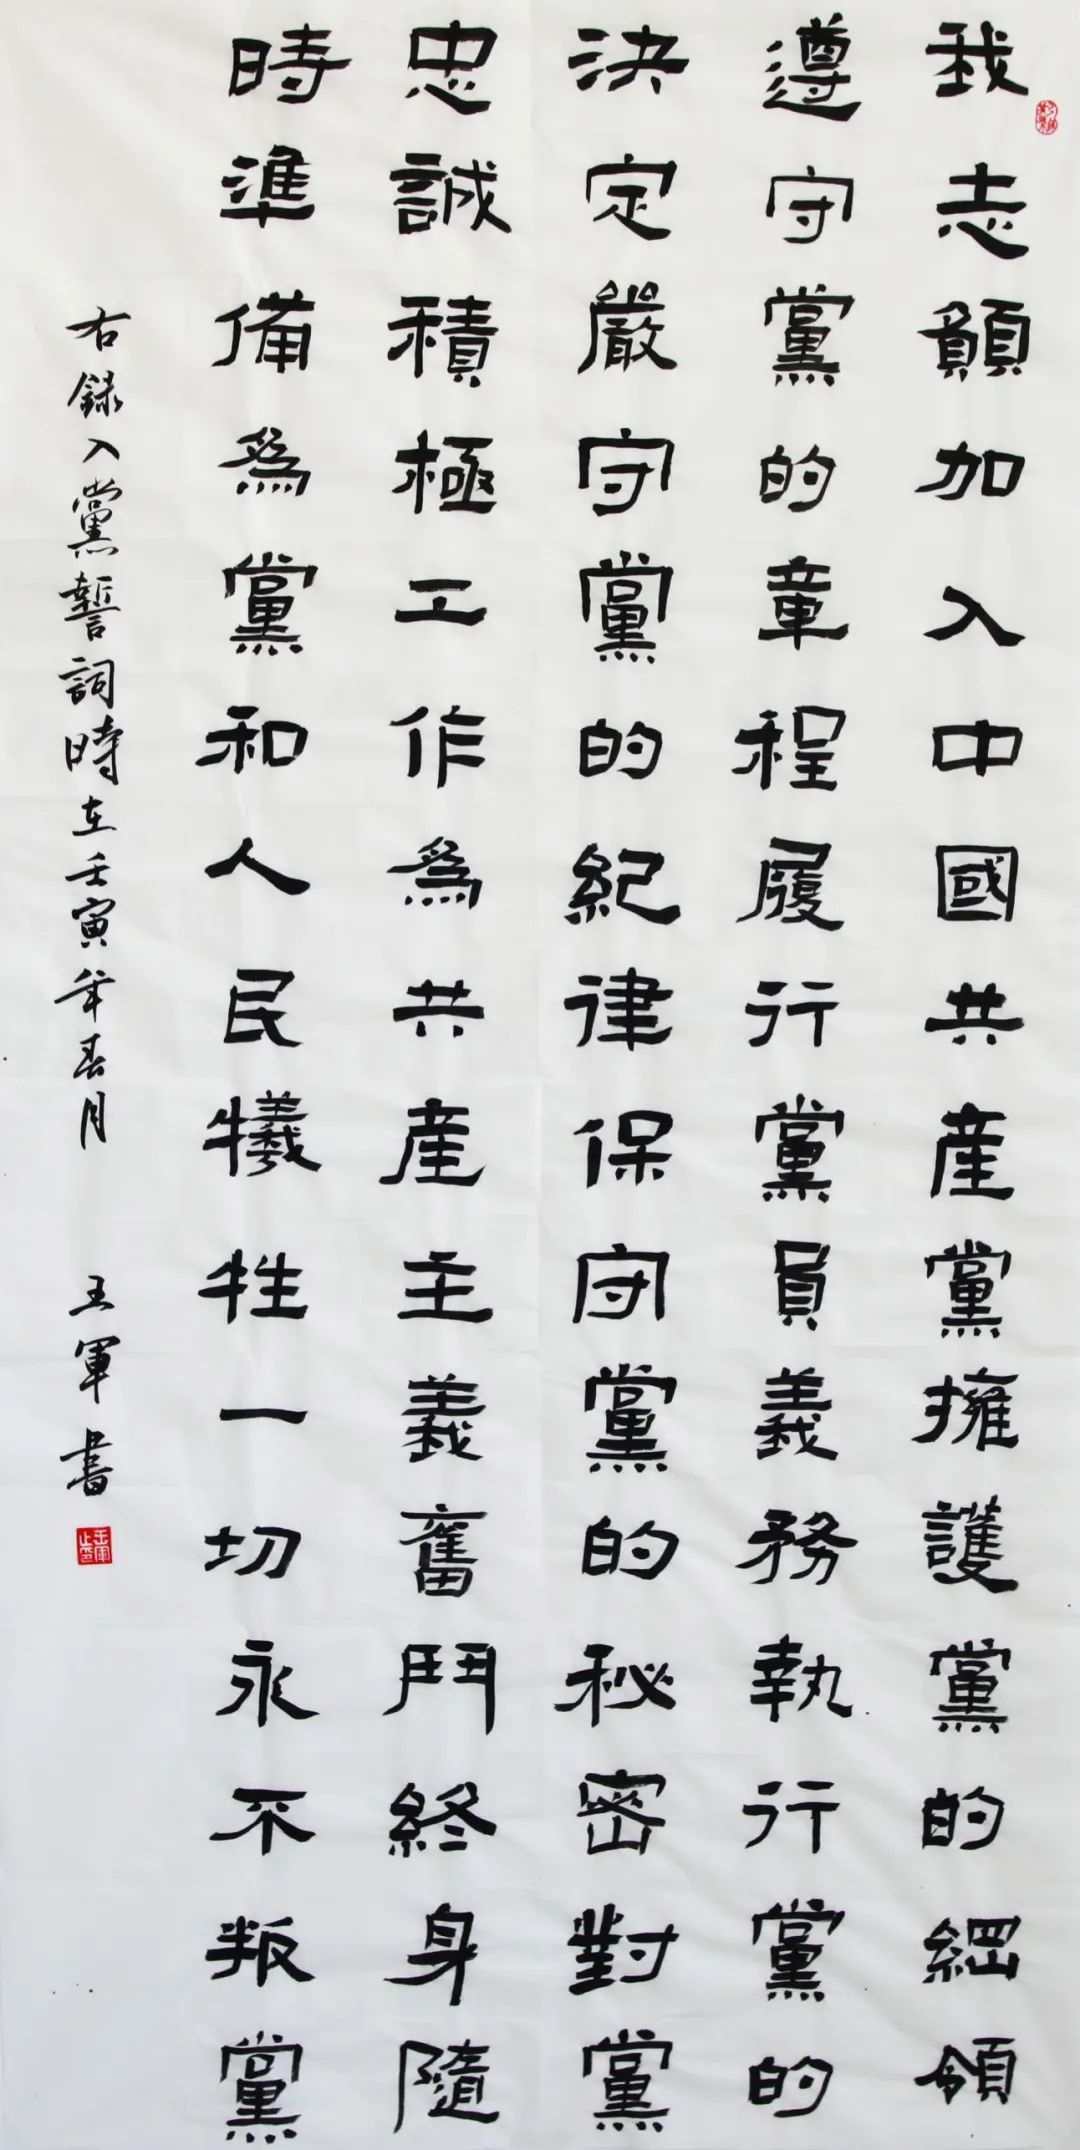 我志願加入中國共産黨擁護黨的綱領
遵守黨的章程履行黨員義務執行黨的
決定嚴守黨的紀律保守黨的秘密對黨
忠誠積極工作為共産主義奮鬥終身隨
時準備為黨和人民犧牲一切永不叛黨
右録入黨誓詞時在壬寅年春月
王軍書